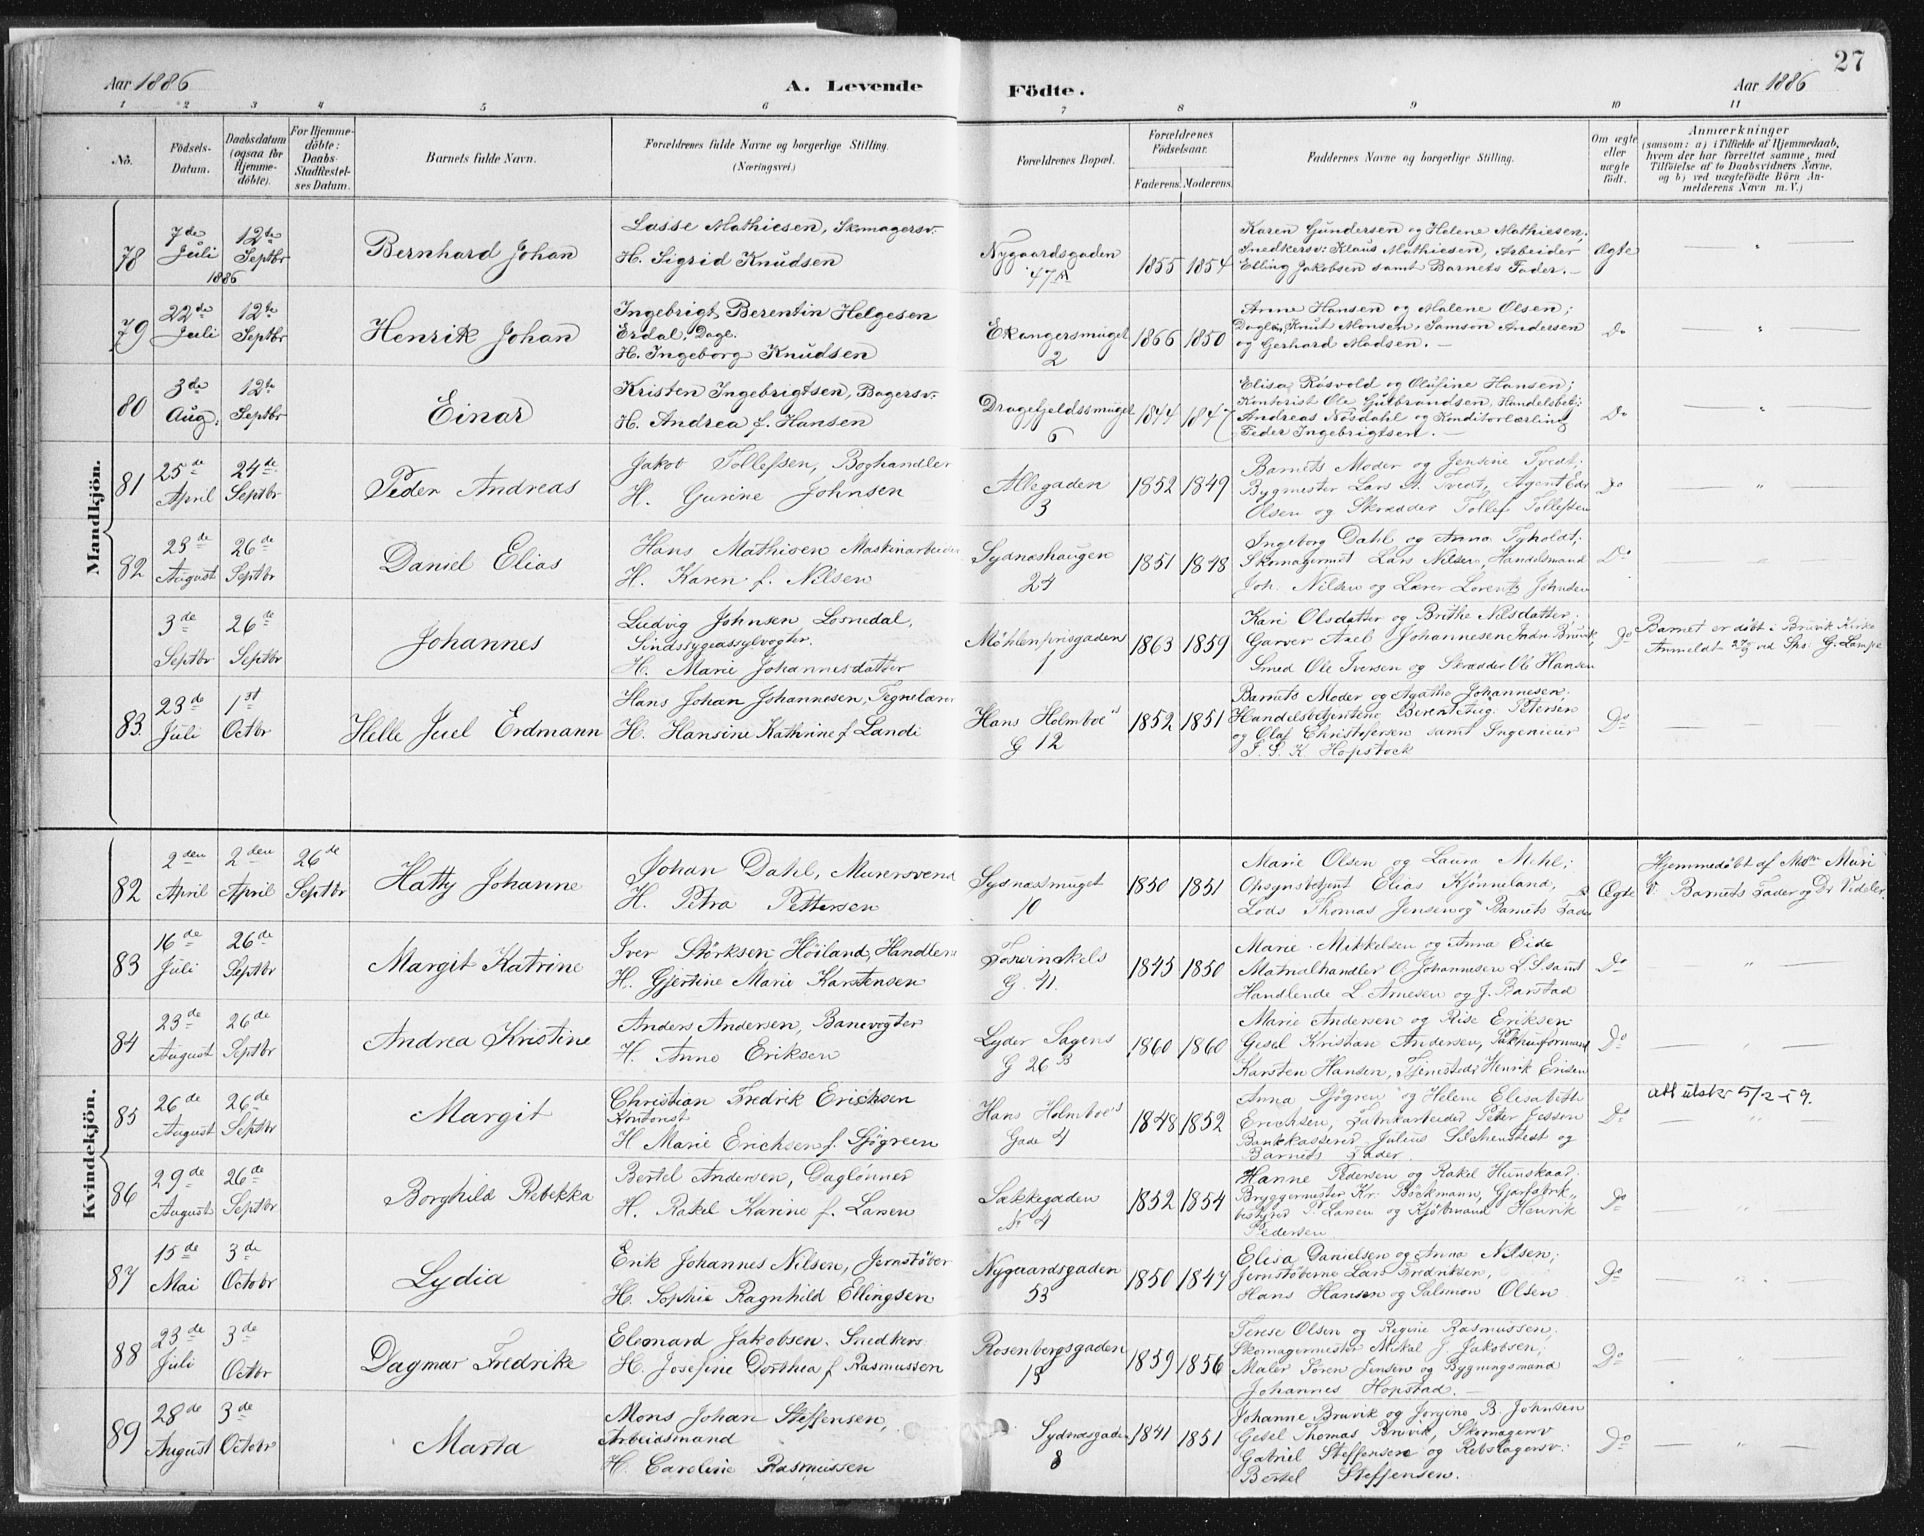 27
Aar 1886
A. Levende Födte.
Aar 1886
1 2 3 4 5 6 7 8 9 10 11
No.
Födsels-
Datum.
Daabsdatum
(ogsaa for
Hjemme-
döbte).
For Hjemme-
döbte:
Daabs-
Stadfæstel-
ses Datum.
Barnets fulde Navn.
Forældrenes fulde Navne og borgerlige Stilling.
(Næringsvei.)
Forældrenes Bopæl.
Forældrenes
Födselsaar.
Faderens. Moderens.
Faddernes Navne og borgerlige Stilling.
Om ægte
eller
uægte
födt.
Anmærkninger
(saasom: a) i Tilfælde af Hjemmedaab,
hvem der har forrettet samme, med
Tilföielse af to Daabsvidners Navne,
og b) ved uægtefödte Börn An-
melderens Navn m. V.)
Mandkjön.
78
7de Juli 1886
12te Septbr
Bernhard Johan
Lasse Mathiesen, Skomagersv.
H. Sigrid Knudsen
Nygaardsgaden
47A
1855 1854
Karen Gundersen og Helene Mathiesen;
Snedkersv: Klaus Mathiesen, Arbeider
Elling Jakobsen samt Barnets Fader. —
Ægte
79
22de Juli
12te Septbr
Henrik Johan
Ingebrigt Berentin Helgesen
Erdal, Dagl.
H. Ingeborg Knudsen
Ekangersmuget
2
1866 1850
Anne Hansen og Malene Olsen;
Dagl. Knut Monsen, Samson Andersen
og Gerhard Madsen. —
Do
80
3de Aug.
12te Septbr
Einar
Kristen Ingebrigtsen, Bagersv.
H. Andrea f. Hansen
Dragefjeldssmuget
6
1844 1847
Elisa Røsvold og Olufine Hansen;
Kontorist Ole Gulbrandsen, Handelsbetj:
Andreas Nøsdahl og Konditorlærling
Peder Ingebrigtsen. —
Do
81
25de April
24de Septbr
Peder Andreas
Jakob Tollefsen, Boghandler
H. Gurine Johnsen
Allegaden
3
1852 1849
Barnets Moder og Jensine Tvedt;
Bygmester Lars A. Tvedt, Agent Edv
Olsen og Skrædder Tollef Tollefsen
Do
82
23de August
26de Septbr
Daniel Elias
Hans Mathisen Maskinarbeider
H. Karen f. Nilsen
Sydnæshaugen
24
1851 1848
Ingeborg Dahl og Anna Tyholdt;
Skomagermst Lars Nilsen, Handelsmand
Joh. Nilsen og Lærer Lorentz Johnsen
Do
3de Septbr
26de Septbr
Johannes
Ludvig Johnsen Losnedal,
Sindssygeassylvogter.
H. Marie Johannesdatter
Möhlenprisgaden
1
1863 1859
Kari Olsdatter og Brithe Nilsdatter;
Garver Axel Johannesen Indre Bruvik,
Smed Ole Iversen og Skrædder Ole Hansen
Do
Barnet er døbt i Bruvik Kirke
Anmeldt 27/9 ved Sps: G. Lampe
83.
23de Juli
1st Octbr
Helle Juel Erdmann
Hans Johan Johannesen, Tegnelærer
H. Hansine Kathrine f Landi
Hans Holmboes
G 12
1852 1851
Barnets Moder og Agathe Johannesen.
Handelsbetjentene Berent Aug. Petersen
og Olaf Christofersen samt Ingenieur
S. S. K. Hopstock
Do
Kvindekjön.
82
2den April
2den April
26de Septbr
Hatty Johanne
Johan Dahl, Murersvend
H. Petra Pettersen
Sydnæsmuget
10
1850 1851
Marie Olsen og Laura Mehl;
Opsynsbetjent Elias Kjønneland,
Lods Thomas Jensen og Barnets Fader
Ægte
Hjemmedöbt af Mdm Muri
V: Barnets Fader og Dr Vedeler.
83
16de Juli
26de Septbr
Margit Katrine
Iver Størksen Höiland, Handlende
H. Gjertine Marie Karstensen
Fosswinckels
G. 41.
1845 1850
Marie Mikkelsen og Anna Eide
Matrialhandler O. Johannesen L.S. samt
Handlende L. Arnesen og J. Barstad
Do
84
23de August
26de Septbr
Andrea Kristine
Anders Andersen, Banevogter
H. Anne Eriksen
Lyder Sagens
G 26 B
1860 1860
Marie Andersen og Rise Eriksen
Gesel Kristian Andersen, Pakhusformand
Karsten Hansen, Tjenestedr Henrik Eriksen
Do
85
26de August
26de Septbr
Margit
Christian Fredrik Erichsen
Kontorist
H Marie Erichsen f. Sjøgreen
Hans Holmboes
Gade 4
1848 1852
Anna Sjøgren og Helene Elisabeth
Erichsen, Fabrikarbeider Peter Jessen
Bankkasserer Julius
Barnets Fader.
Do
att utskr 5/2 59.
86
29de August
26de Septbr
Borghild Rebekka
Bertel Andersen, Daglönner
H. Rakel Karine f. Larsen
Sækkegaden
No 4
1852 1854
Hanne Pedersen og Rakel Hunskaar.
Bryggermester Kr. Böckmann, Gjærfabrik-
bestyrer P. Larsen og Kjöbmand Henrik
Pedersen
Do
87
15de Mai
3de Octobr
Lydia
Erik Johannes Nilsen, Jernstöber
H. Sophie Ragnhild Ellingsen
Nygaardsgaden
53
1850 1847
Elisa Danielsen og Anna Nilsen;
Jernstøberne Lars Fredriksen,
Hans Hansen og Salomon Olsen
Do
88
23de Juli
3de Octbr
Dagmar Fredrike
Eleonard Jakobsen. Snedkers:
H. Josefine Dorthea f Rasmussen
Rosenbergsgaden
13
1859 1856
Terese Olsen og Regine Rasmussen,
Skomagermester Mikal J. Jakobsen,
Maler Sören Jensen og Bygningsmand
Johannes Hopstad. —
Do
89
28de August
3de Octobr
Marta
Mons Johan Steffensen,
Arbeidsmand
H. Caroline Rasmussen
Sydnæsgaden
8
1841 1851
Johanne Bruvik og Jorgine B. Johnsen
Gesel Thomas Bruvik, Skomagersv
Gabriel Steffensen og Rebslagersv:
Bertel Steffensen.
Do